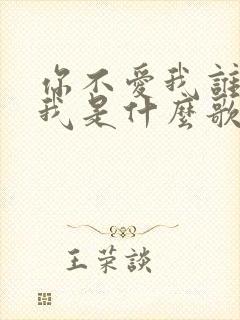 你不愛我誰
我是什麼歌
王荣談